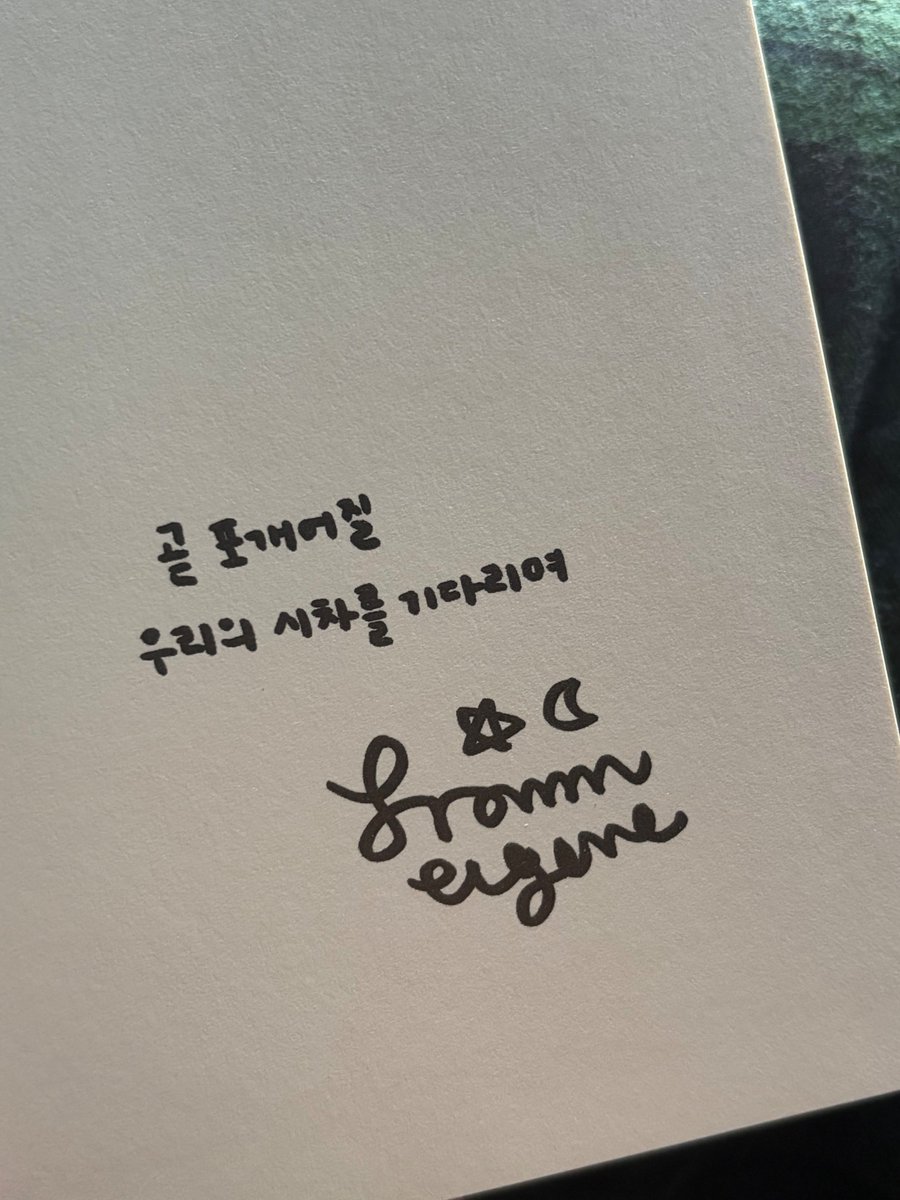 곧 포개어질
우리의 시차를 기다리며
Fromm
eugene